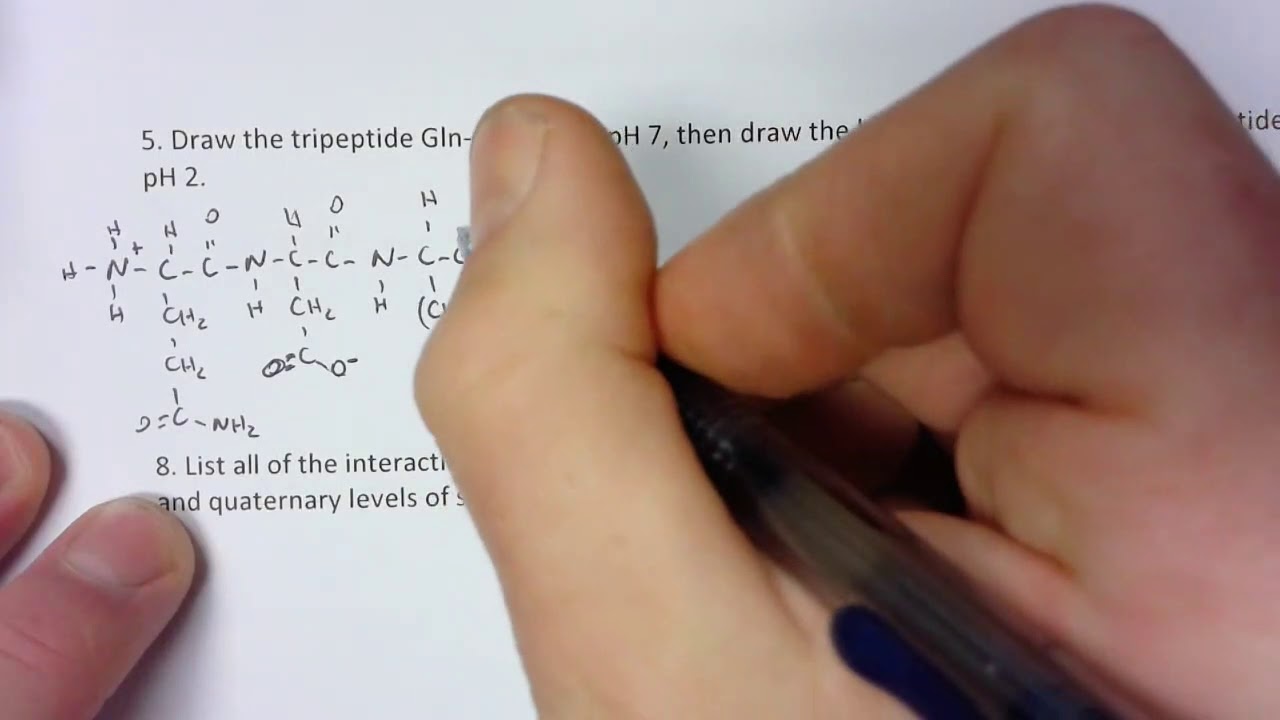 5. Draw the tripeptide Gln- pH 7, then draw the tide
pH 2.
H H O H O H
H - N + - C - C - N - C - C - N - C - C
H CH2 H CH2 H (C
CH2 O=C O-
O=C - NH2
8. List all of the interacti
and quaternary levels of s